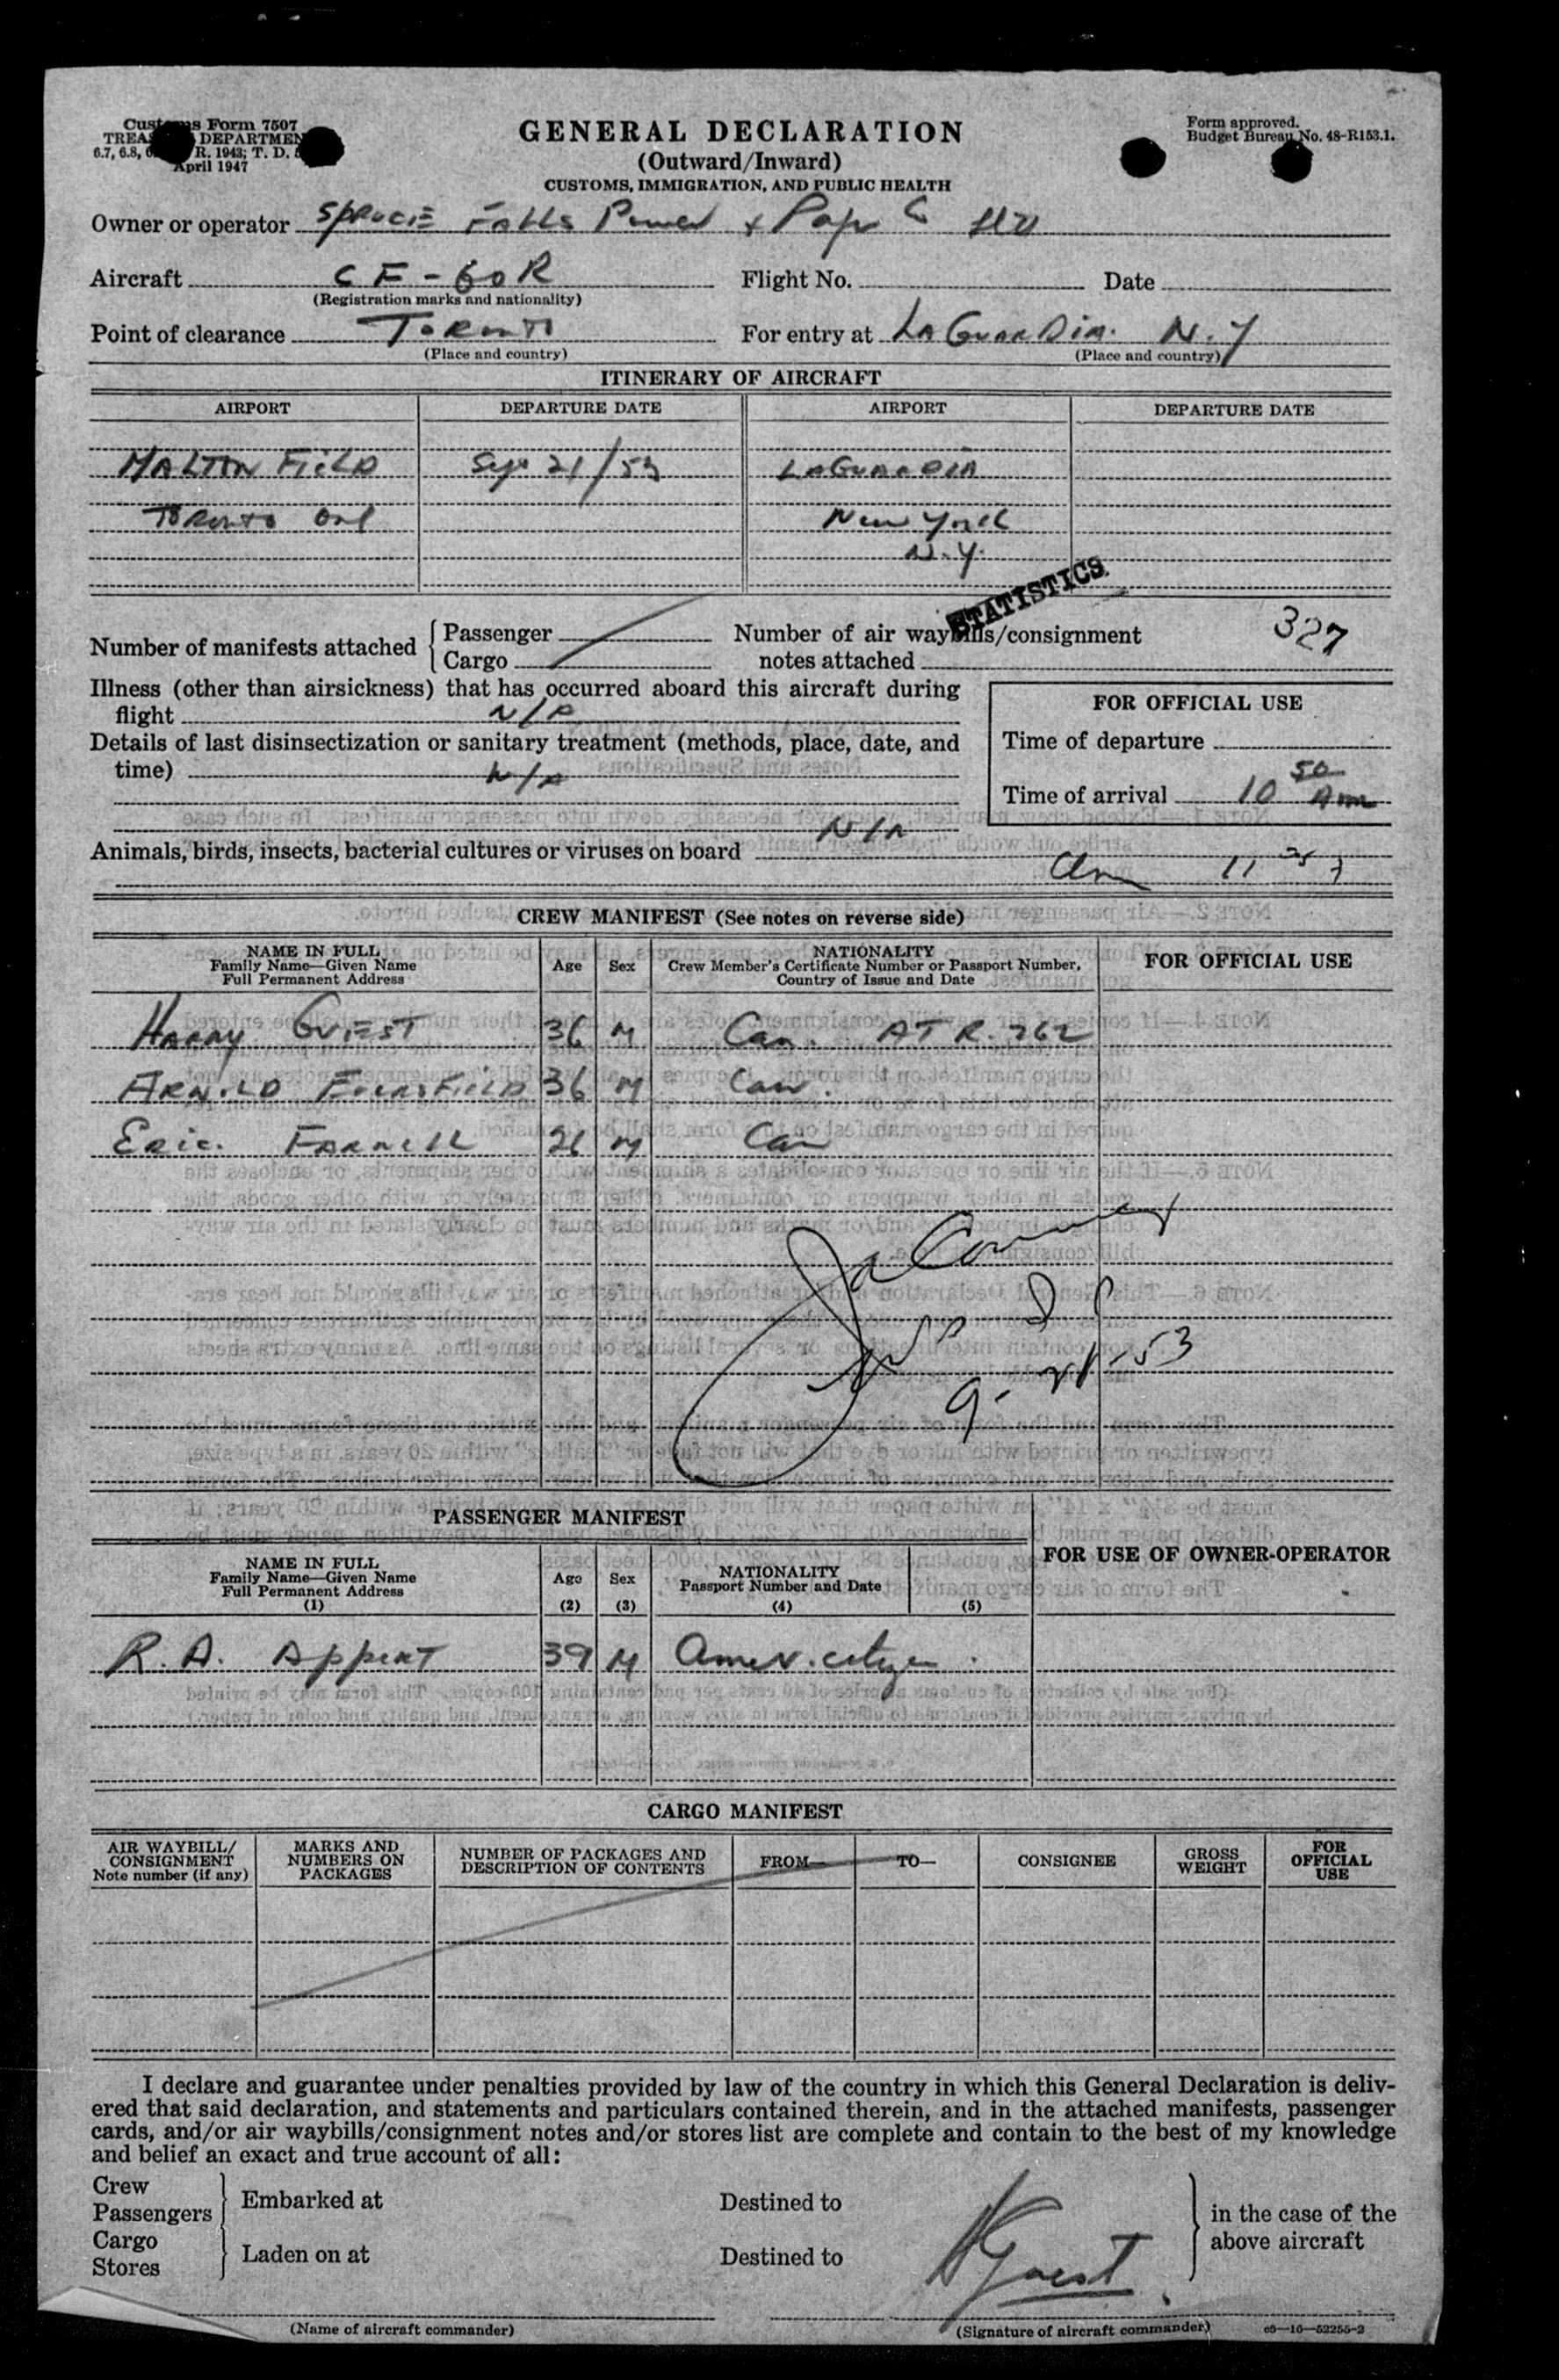 Customs Form 7507
TREASURY DEPARTMENT
6.7, 6.8, R. 1943; T. D.
April 1947
Form approved.
Budget Bureau No. 48-R153.1.
GENERAL DECLARATION
(Outward/Inward)
CUSTOMS, IMMIGRATION, AND PUBLIC HEALTH
Owner or operator Spruce Falls Power + Paper Co Ltd
Aircraft CF-GOR Flight No. Date
(Registration marks and nationality)
Point of clearance Toronto For entry at LaGuardia. N.Y
(Place and country) (Place and country)
ITINERARY OF AIRCRAFT
AIRPORT DEPARTURE DATE AIRPORT DEPARTURE DATE
MALTON FIELD Sep 21/53 LaGuardia
Toronto Ont New York
N.Y.
STATISTICS
327
Number of manifests attached { Passenger Number of air waybills/consignment
Cargo notes attached
Illness (other than airsickness) that has occurred aboard this aircraft during
flight N/A
Details of last disinsectization or sanitary treatment (methods, place, date, and
time) N/A
FOR OFFICIAL USE
Time of departure
Time of arrival 10 50 Am
Animals, birds, insects, bacterial cultures or viruses on board N/A
CREW MANIFEST (See notes on reverse side)
NAME IN FULL
Family Name—Given Name
Full Permanent Address
Age Sex
NATIONALITY
Crew Member's Certificate Number or Passport Number,
Country of Issue and Date
FOR OFFICIAL USE
Harry Guest 36 M Can. ATR. 262
Arnold 36 M Can.
Eric. Farnell 26 M Can
9-21-53
PASSENGER MANIFEST
NAME IN FULL
Family Name—Given Name
Full Permanent Address
(1)
Age
(2)
Sex
(3)
NATIONALITY
Passport Number and Date
(4) (5)
FOR USE OF OWNER-OPERATOR
R. A. Appert 39 M Amer. citizen.
CARGO MANIFEST
AIR WAYBILL/
CONSIGNMENT
Note number (if any)
MARKS AND
NUMBERS ON
PACKAGES
NUMBER OF PACKAGES AND
DESCRIPTION OF CONTENTS
FROM— TO— CONSIGNEE
GROSS
WEIGHT
FOR
OFFICIAL
USE
I declare and guarantee under penalties provided by law of the country in which this General Declaration is deliv-
ered that said declaration, and statements and particulars contained therein, and in the attached manifests, passenger
cards, and/or air waybills/consignment notes and/or stores list are complete and contain to the best of my knowledge
and belief an exact and true account of all:
Crew
Passengers } Embarked at Destined to
Cargo
Stores } Laden on at Destined to
in the case of the
above aircraft
H Guest
(Name of aircraft commander) (Signature of aircraft commander) c9—16—52255-2